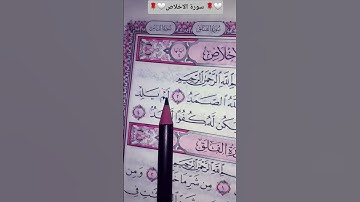 ❤️🌹 سورة الاخلاص 🤍🌹
سُورَةُ الفَلَقِ
خلاص
اللَّهِ الرَّحْمَٰنِ الرَّحِيمِ
اللَّهُ الصَّمَدُ ٢ لَمْ يَلِدْ
يَكُن لَّهُ كُفُوًا أَحَدٌ
رة الفلق
اللَّهِ الرَّحْمَٰنِ الرَّحِيمِ
مِن شَرِّ مَا وَمِن